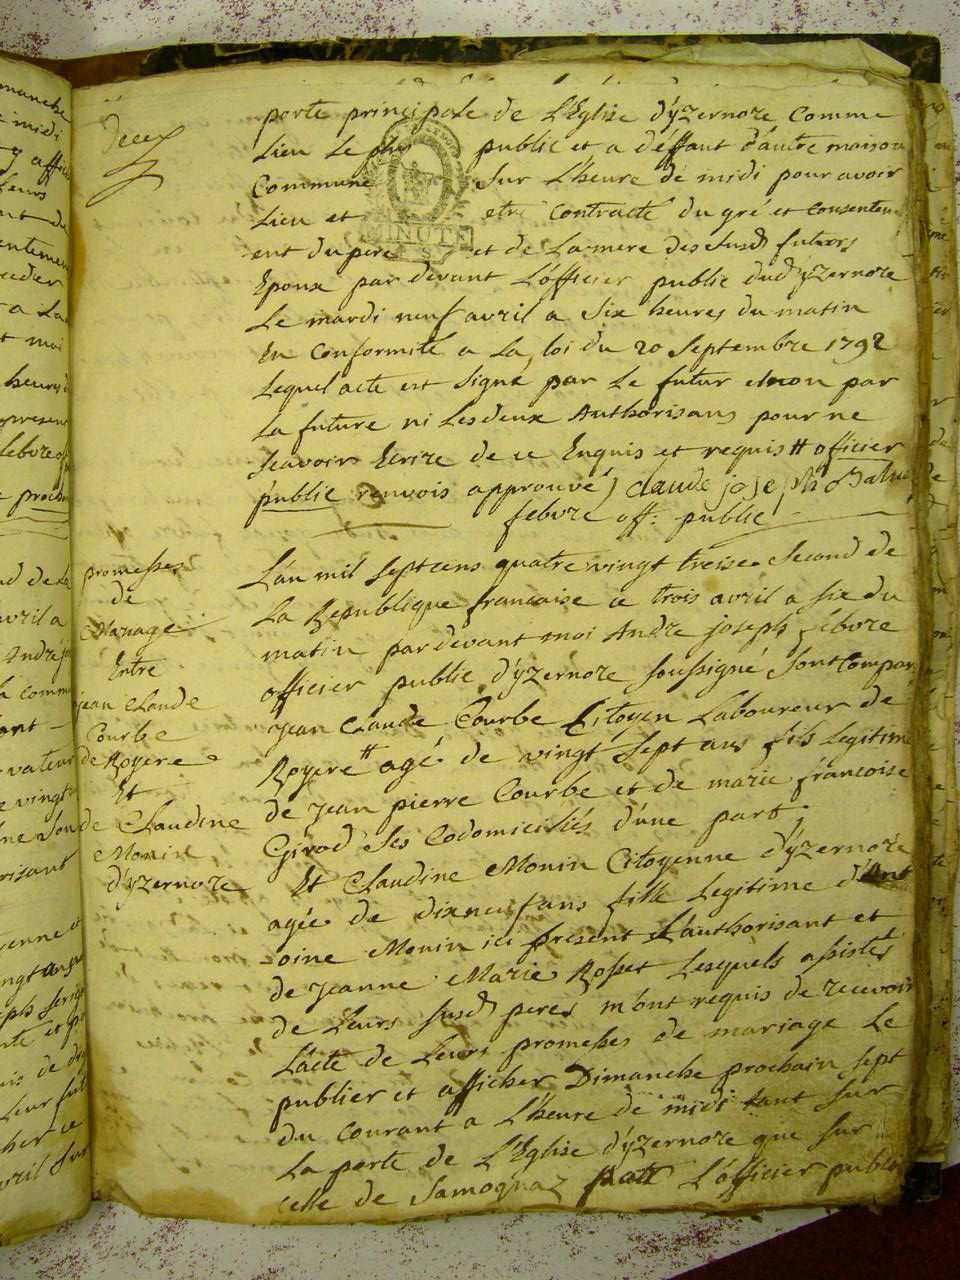 Deux
porte principale de L'Eglise d'yzernore Comme
Lieu Le plus public et a deffaut d'autre maison
Commune sur L'heure de midi pour avoir
Lieu et etre contracté du gré et consentem
ent du pere et de La mere des susd futurs
Epoux par devant L'officier public dud yzernore
Le mardi neuf avril a six heures du matin
En Conformité a La loi du 20 septembre 1792
Lequel acte est signé par Le futur et non par
La future ni Les deux Authorisans pour ne
scavoir Ecrire de ce Enquis et requis # officier
public renvois approuvé claude joseph
febvre off. public
promesses
de
Mariage
Entre
jean Claude
Courbe
de Royere
Et
de Claudine
Monin
d'yzernore
L'an mil sept cens quatre vingt treise second de
La Republique francaise ce trois avril a six du
matin pardevant moi André joseph febvre
officier public d'yzernore soussigné sont compar
jean Claude Courbe Citoyen Laboureur de
Royere # agé de vingt sept ans fils Legitime
de jean pierre Courbe et de marie francoise
Girod ses Codomiciliés d'une part
Et Claudine Monin Citoyenne d'yzernore
agée de dixneuf ans fille Legitime d'Ant
oine Monin ici present L'authorisant et
de jeanne Marie Rosset Lesquels assistés
de Leurs susd peres m'ont requis de recevoir
L'acte de Leurs promesses de mariage Le
publier et afficher Dimanche prochain sept
du courant a L'heure de midi tant sur
La porte de L'Eglise d'yzernore que sur
celle de Samognaz par L'officier public